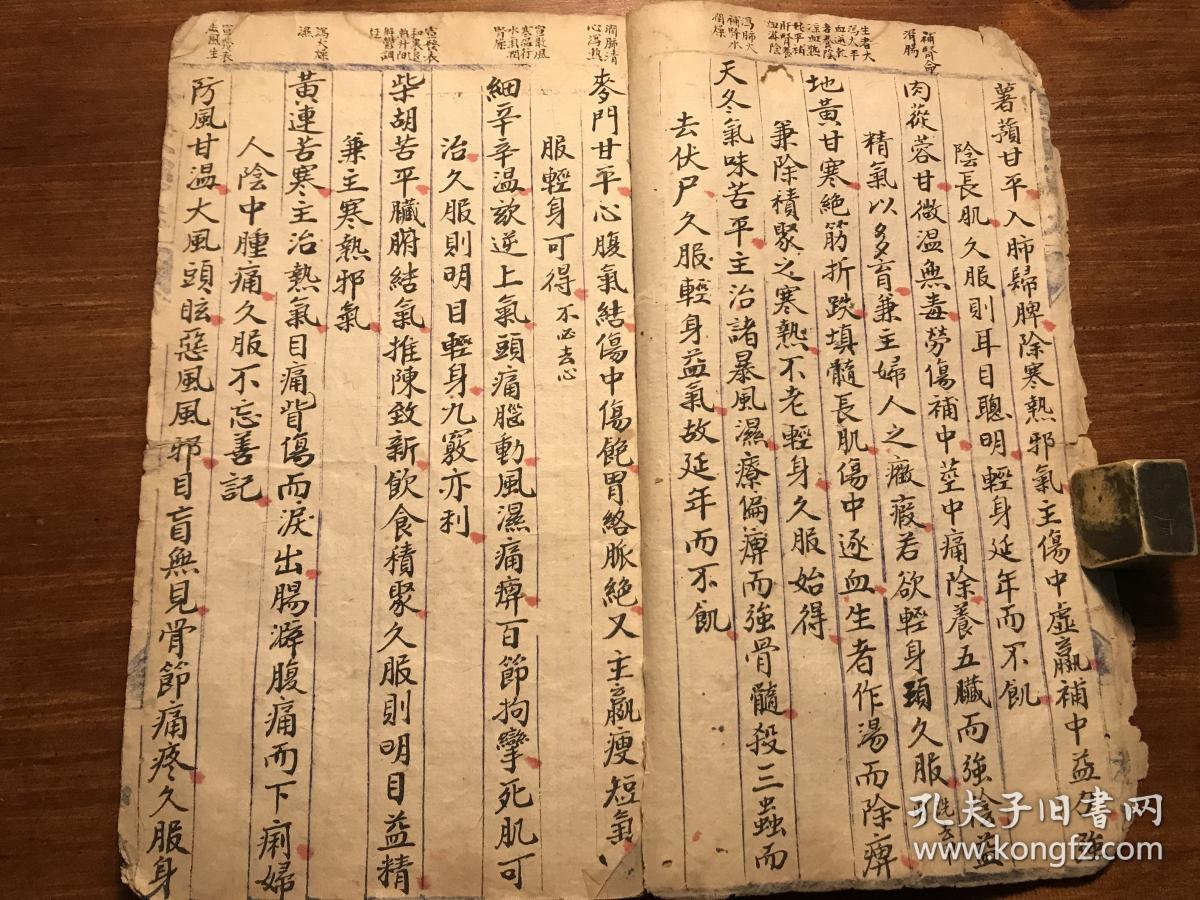 補腎命
滑腸
薯蕷甘平入肺歸脾除寒熱邪氣主傷中虛羸補中益
陰長肌久服則耳目聰明輕身延年而不飢
肉蓯蓉甘微溫無毒勞傷補中莖中痛除養五臟而強陰益
精氣以多育兼主婦人之癥瘕若欲輕身須久服
生者大
瀉火平
血逆
地黃甘寒絕筋折跌填髓長肌傷中逐血生者作湯而除痹
兼除積聚之寒熱不老輕身久服始得
瀉肺火
補腎水
潤燥
天冬氣味苦平主治諸暴風濕療偏痹而強骨髓殺三蟲而
去伏尸久服輕身益氣故延年而不飢
潤肺清
心瀉熱
麥門甘平心腹氣結傷中傷飽胃絡脈絕又主羸瘦短氣
服輕身可得不必去心
宣散風
寒溫行
水氣潤
腎燥
細辛辛溫欬逆上氣頭痛腦動風濕痛痹百節拘攣死肌可
治久服則明目輕身九竅亦利
宣發表
和裏退
熱升陽
解鬱調
經
柴胡苦平臟腑結氣推陳致新飲食積聚久服則明目益精
兼主寒熱邪氣
瀉火燥
濕
黃連苦寒主治熱氣目痛眥傷而淚出腸澼腹痛而下痢婦
人陰中腫痛久服不忘善記
宣發表
去風生
防風甘溫大風頭眩惡風風邪目盲無見骨節痛疼久服身
孔夫子旧书网
www.kongfz.com